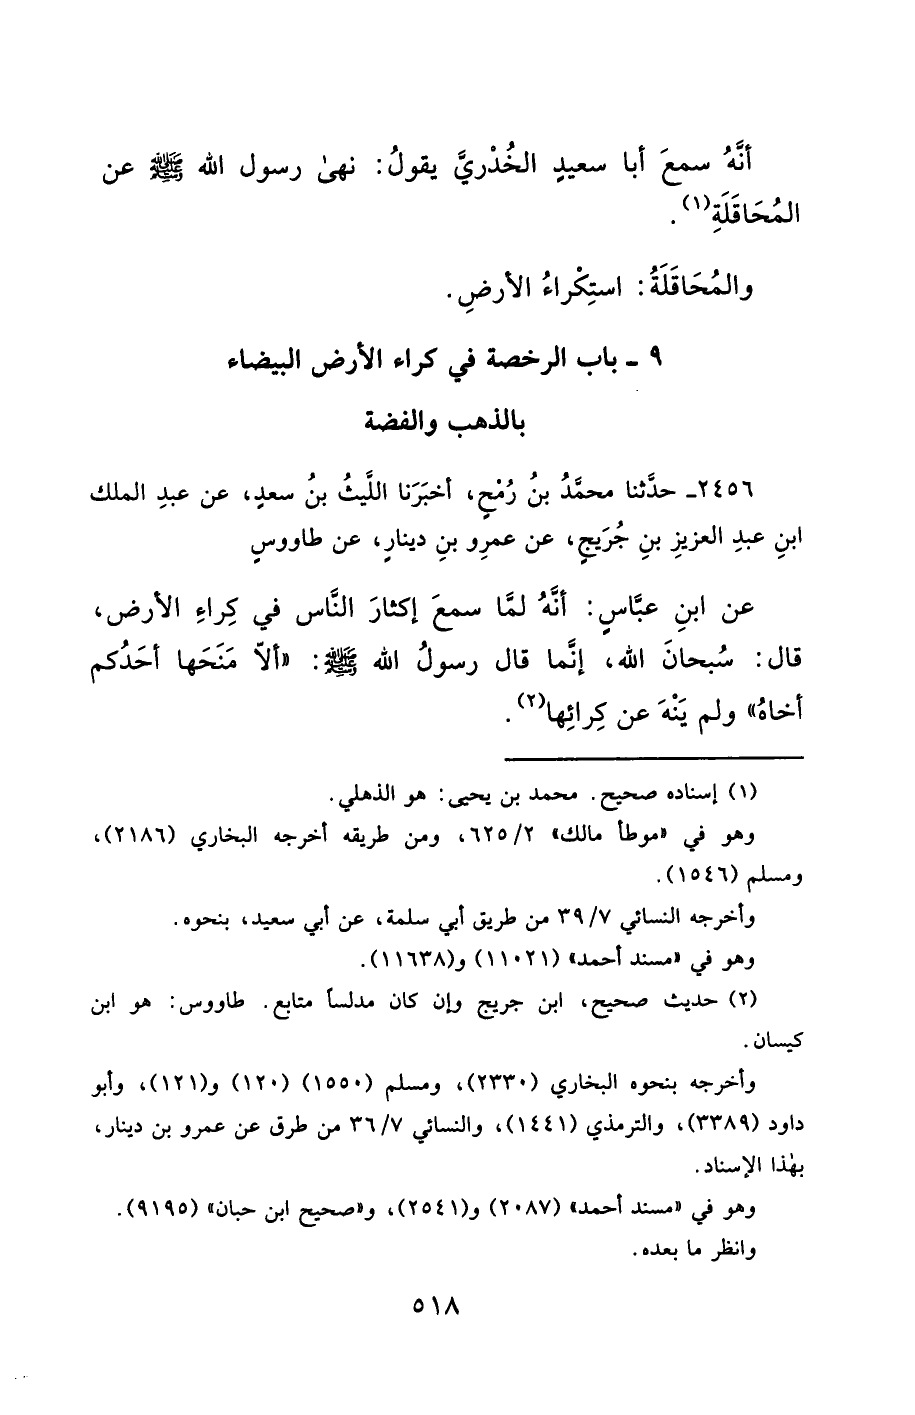 أنَّهُ سمعَ أبا سعيدٍ الخُدْريَّ يقولُ: نهىٰ رسول الله ﷺ عن
المُحَاقَلَةِ(١).
والمُحَاقَلَةُ: استِكْراءُ الأرضِ.
٩ ـ باب الرخصة في كراء الأرض البيضاء
بالذهب والفضة
٢٤٥٦ـ حدَّثنا محمَّدُ بنُ رُمْحٍ، أخبَرَنا اللَّيثُ بنُ سعدٍ، عن عبدِ الملك
ابنِ عبدِ العزيزِ بنِ جُرَيجٍ، عن عمرِو بنِ دينارٍ، عن طاووسٍ
عن ابنِ عبَّاسٍ: أنَّهُ لمَّا سمعَ إكثارَ النَّاس في كِراءِ الأرض،
قال: سُبحانَ الله، إنَّما قال رسولُ الله ﷺ: «ألاّ مَنَحَها أحَدُكم
أخاهُ» ولم يَنْهَ عن كِرائِها(٢).
(١) إسناده صحيح. محمد بن يحيى: هو الذهلي.
وهو في «موطأ مالك» ٢/ ٦٢٥، ومن طريقه أخرجه البخاري (٢١٨٦)،
ومسلم (١٥٤٦).
وأخرجه النسائي ٧/ ٣٩ من طريق أبي سلمة، عن أبي سعيد، بنحوه.
وهو في «مسند أحمد» (١١٠٢١) و(١١٦٣٨).
(٢) حديث صحيح، ابن جريج وإن كان مدلساً متابع. طاووس: هو ابن
كيسان.
وأخرجه بنحوه البخاري (٢٣٣٠)، ومسلم (١٥٥٠) (١٢٠) و(١٢١)، وأبو
داود (٣٣٨٩)، والترمذي (١٤٤١)، والنسائي ٧/ ٣٦ من طرق عن عمرو بن دينار،
بهٰذا الإسناد.
وهو في «مسند أحمد» (٢٠٨٧) و(٢٥٤١)، و«صحيح ابن حبان» (٩١٩٥).
وانظر ما بعده.
٥١٨